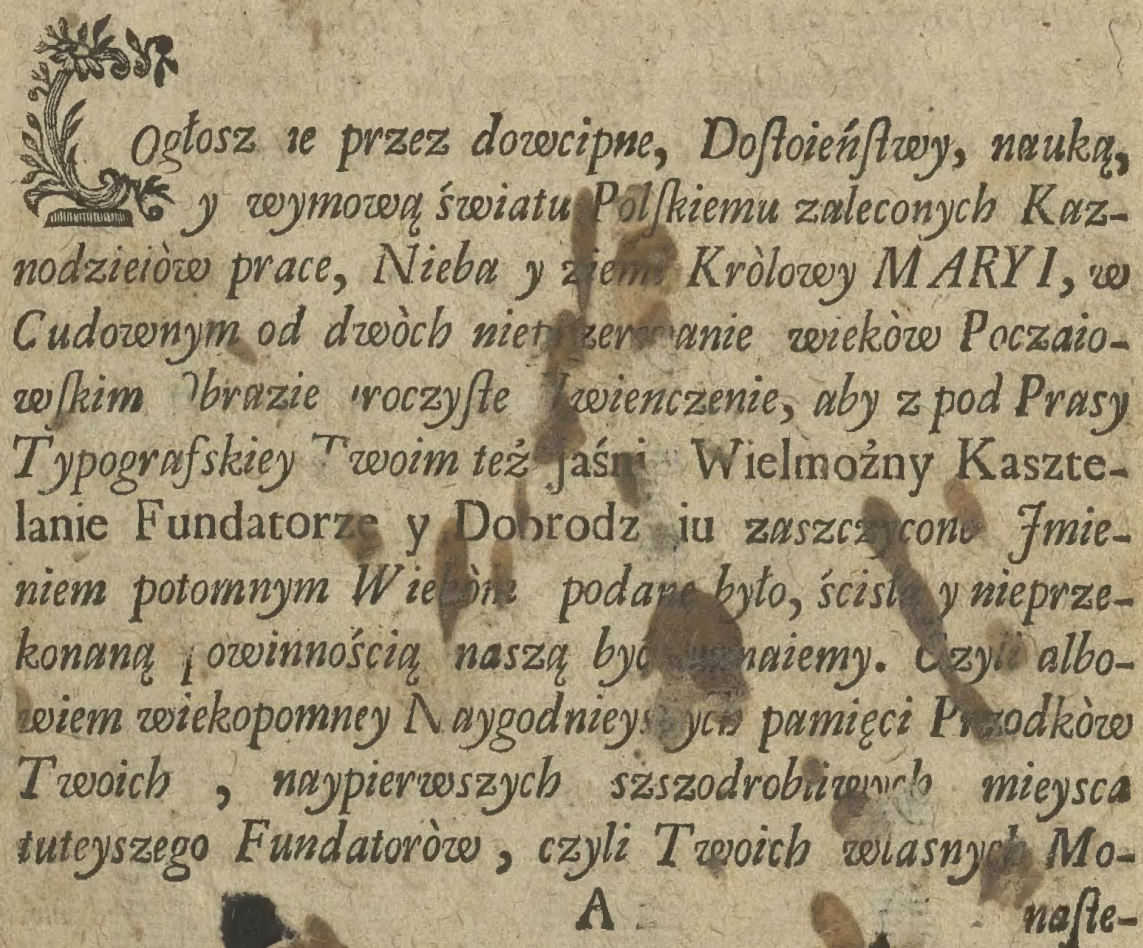 Ogłosz ie przez dowcipne, Doſtoieńſtwy, nauką,
y wymową światu Polſkiemu zaleconych Kaz-
nodzieiòw prace, Nieba y Kròlowy MARYI, w
Cudownym od dwòch wiekòw Poczaio-
wſkim zwienczenie, aby z pod Prasy
Typografskiey Twoim też Wielmożny Kaszte-
lanie Fundatorze y zaszczycone Jmie-
niem potomnym Wiekòm podane było, ścisłą y nieprze-
konaną owinnością naszą być Czyli albo-
wiem wiekopomney Naygodnieyszych pamięci Przodkòw
Twoich , naypierwszych mieysca
tuteyszego Fundatoròw , czyli Twoich wlasnych Mo-
A naſte-